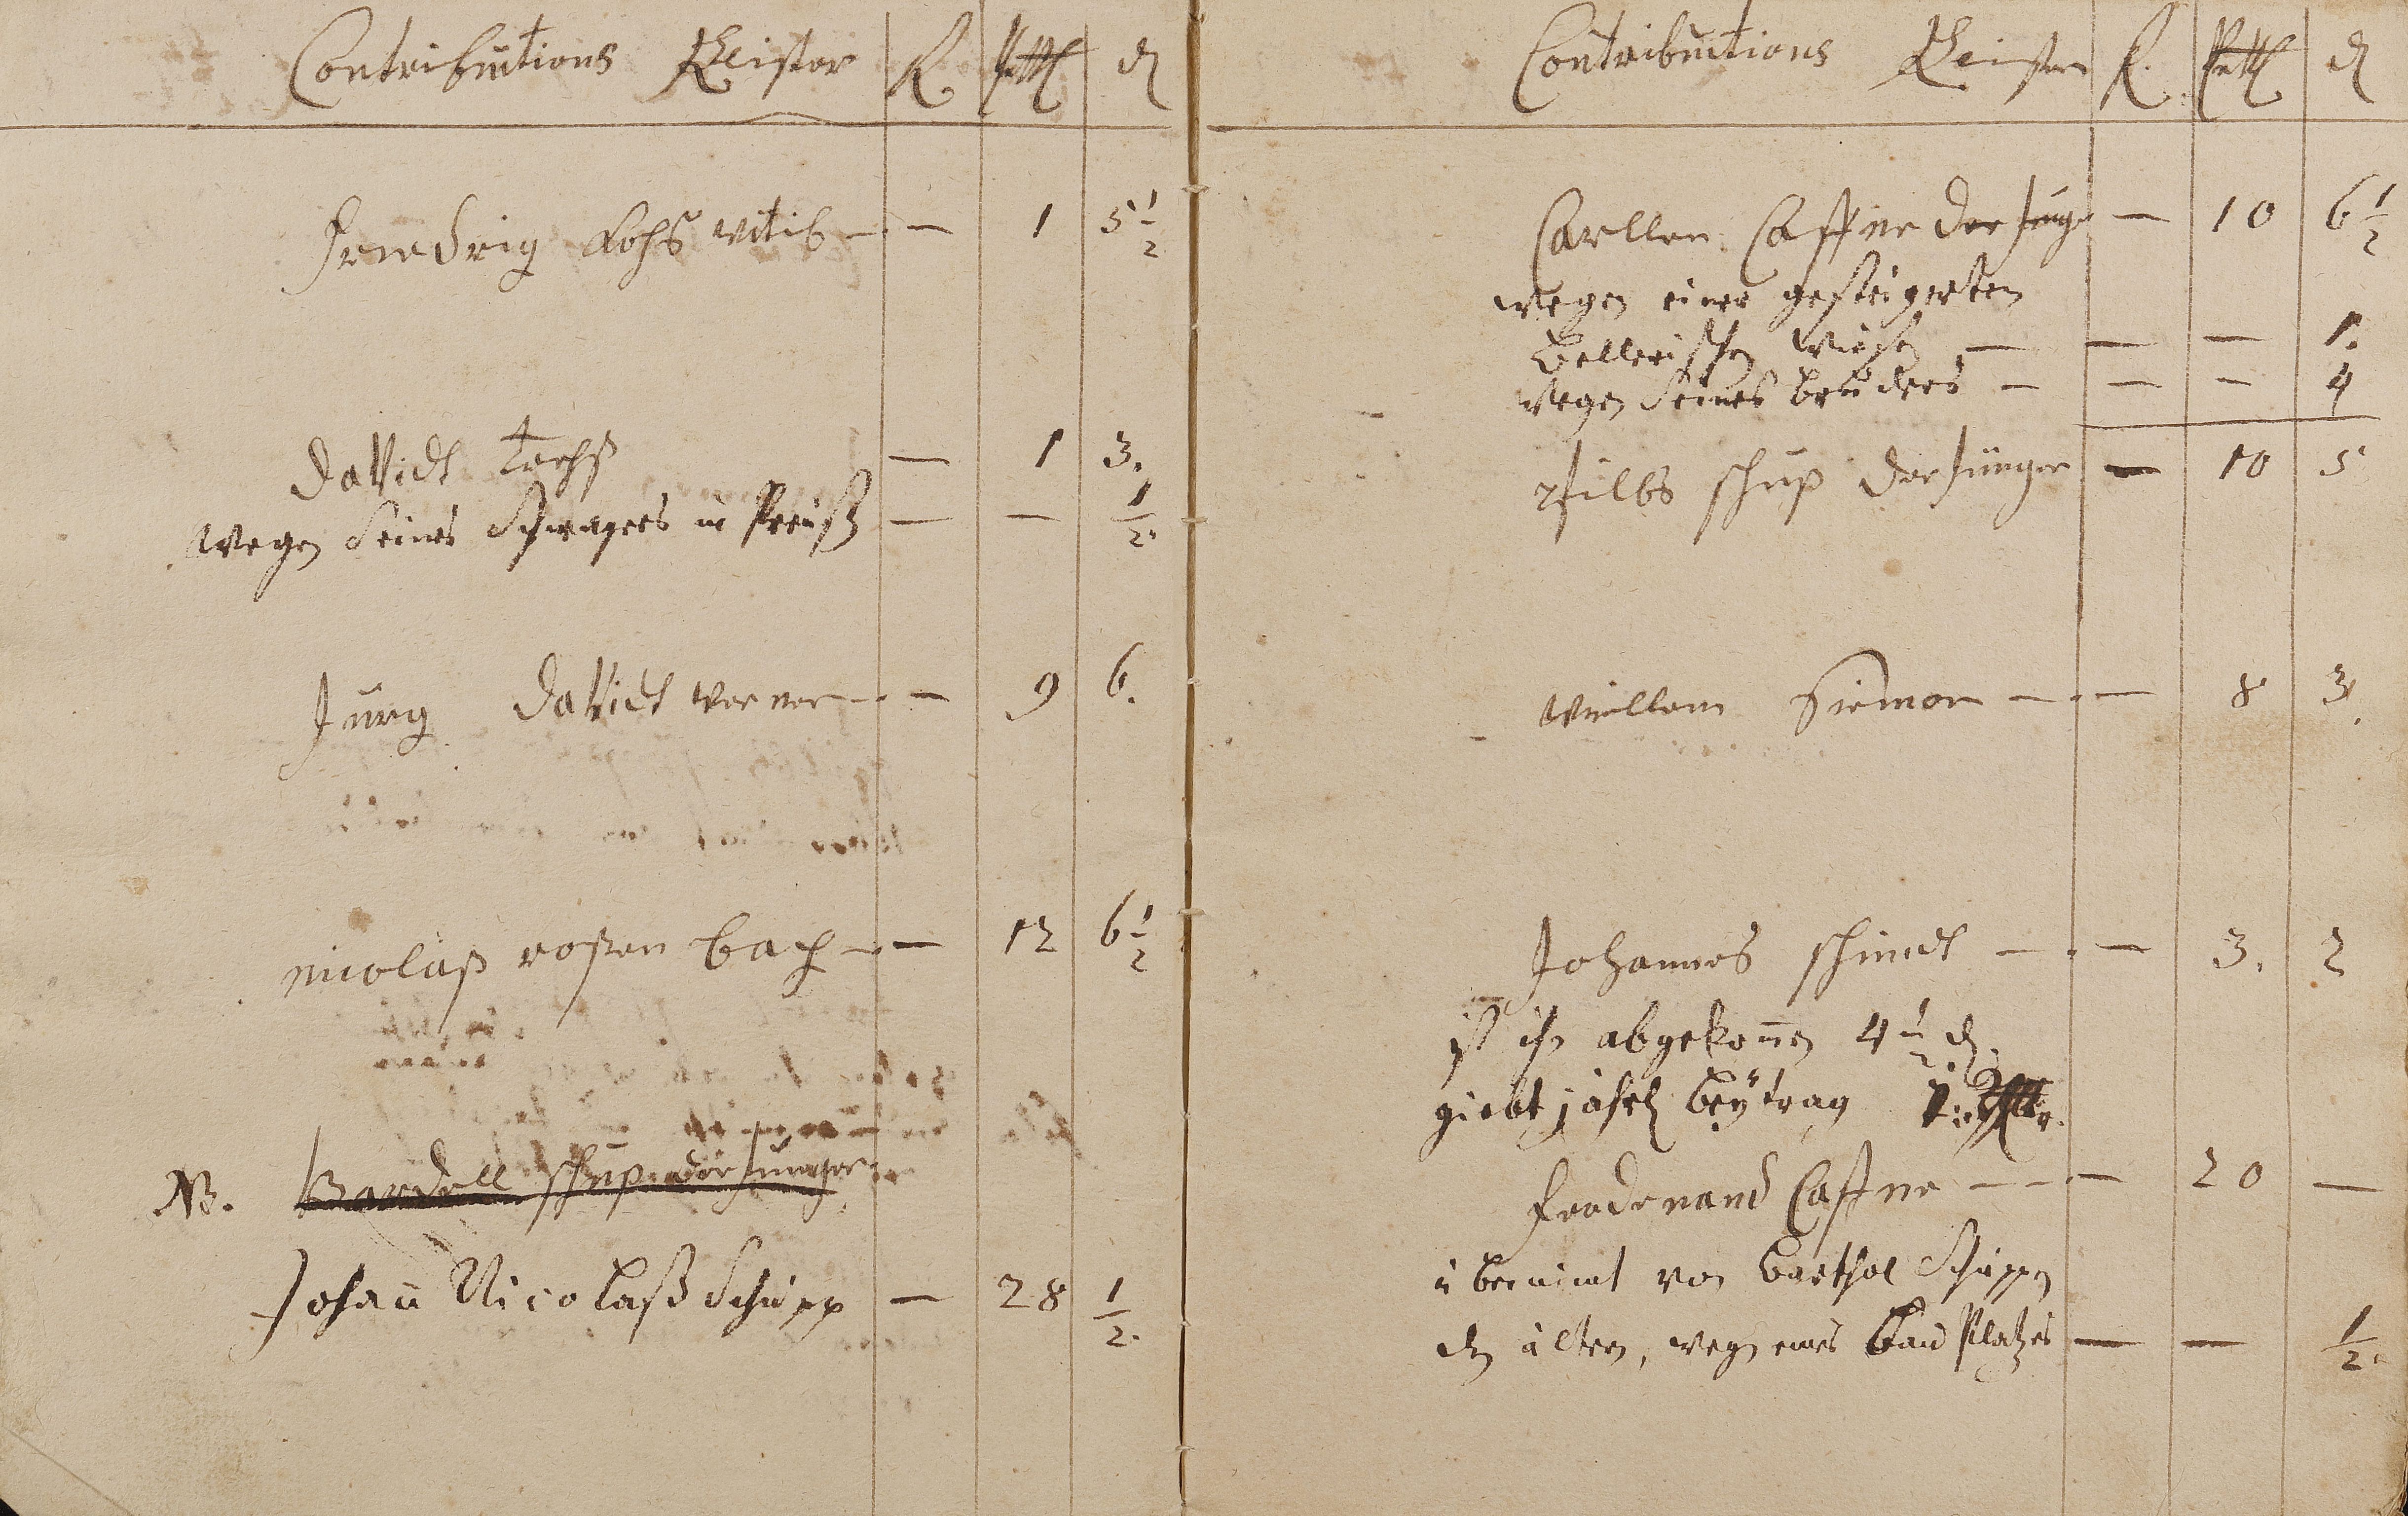 Contributions Reister R. Pettl d
Friedrig Lohs witib — — 1 5 1/2
David Trohß — 1 3.
wegen Seines Schwagers in Preuß — — 1/2.
Jürg David werner — — 9 6.
nicolaß roßen bach — — 12 6 1/2
NB. Bardell schup der Junger
Johan̄ Nicolaß Schupp — 28 1/2.
Contributions Reister R. Pettl d
Carllen Castne der Jüng — 10 6 1/2
wegen einer gesteigerten
Bellerischen Wiesen — — — 1.
Wegen Seines bruders — — — 4
Filbs schup der Jünger — 10 5
Wiellem Siemon — — 8 3.
Johannes schmidt — — 3. 2
ist ihm abgekom̄en 4 1/2 d.
giebt jährl beÿtrag
Ferdenand Castne — — 20 —
übernimt von Barthol Schuppen
den ältern, wegen eines Bau Platzes — — 1/2.